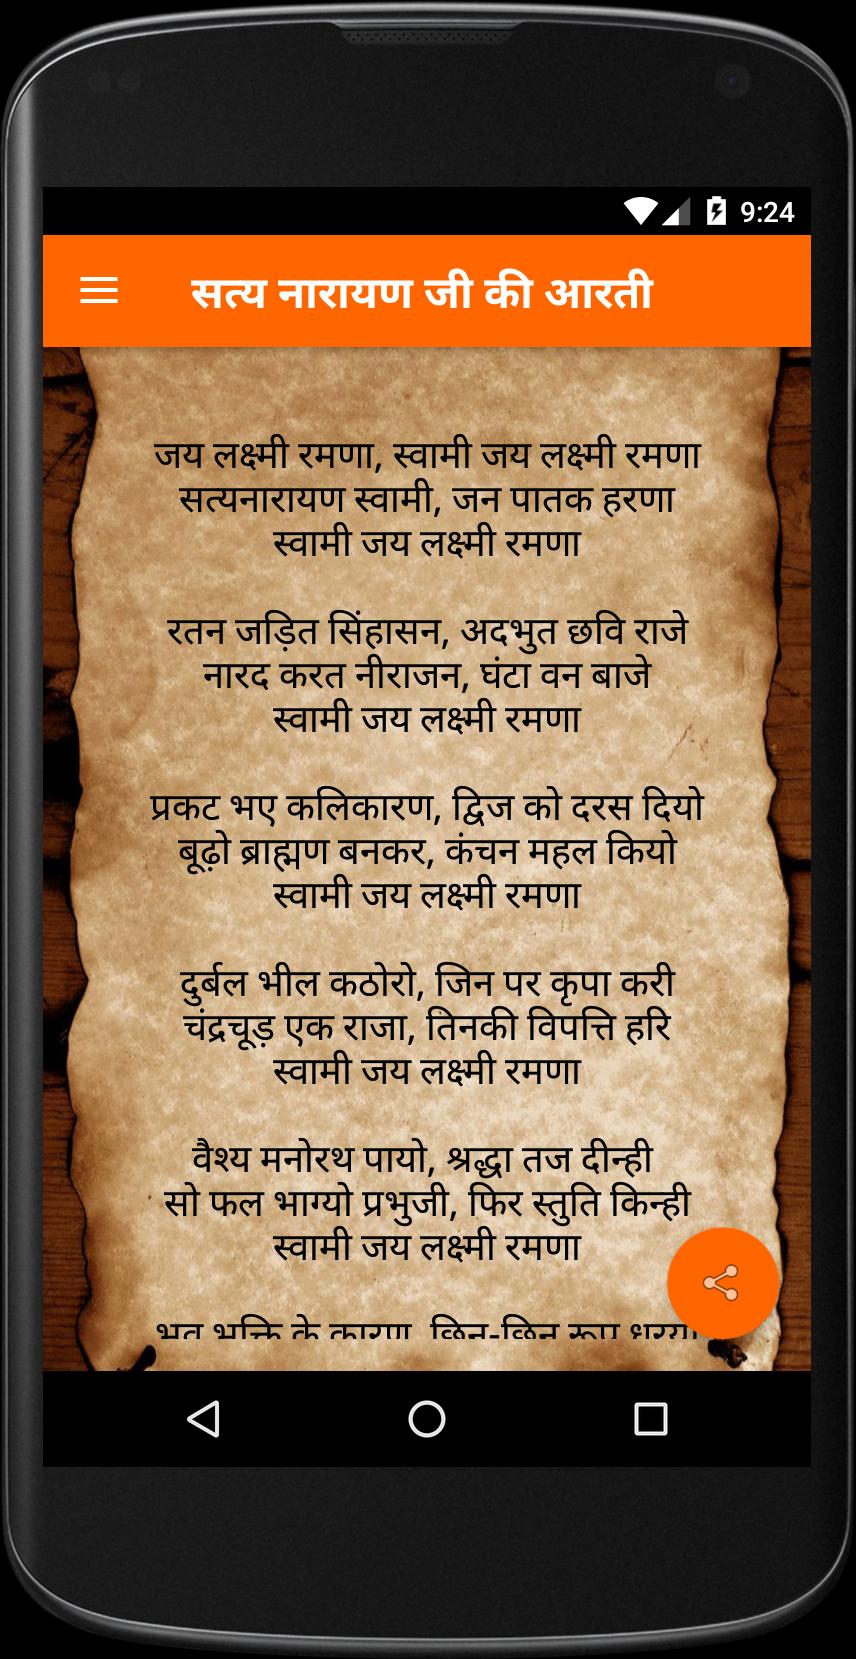 9:24
सत्य नारायण जी की आरती
जय लक्ष्मी रमणा, स्वामी जय लक्ष्मी रमणा
सत्यनारायण स्वामी, जन पातक हरणा
स्वामी जय लक्ष्मी रमणा
रतन जड़ित सिंहासन, अदभुत छवि राजे
नारद करत नीराजन, घंटा वन बाजे
स्वामी जय लक्ष्मी रमणा
प्रकट भए कलिकारण, द्विज को दरस दियो
बूढ़ो ब्राह्मण बनकर, कंचन महल कियो
स्वामी जय लक्ष्मी रमणा
दुर्बल भील कठोरो, जिन पर कृपा करी
चंद्रचूड़ एक राजा, तिनकी विपत्ति हरि
स्वामी जय लक्ष्मी रमणा
वैश्य मनोरथ पायो, श्रद्धा तज दीन्ही
सो फल भाग्यो प्रभुजी, फिर स्तुति किन्ही
स्वामी जय लक्ष्मी रमणा
के कारण, छिन-छिन रूप